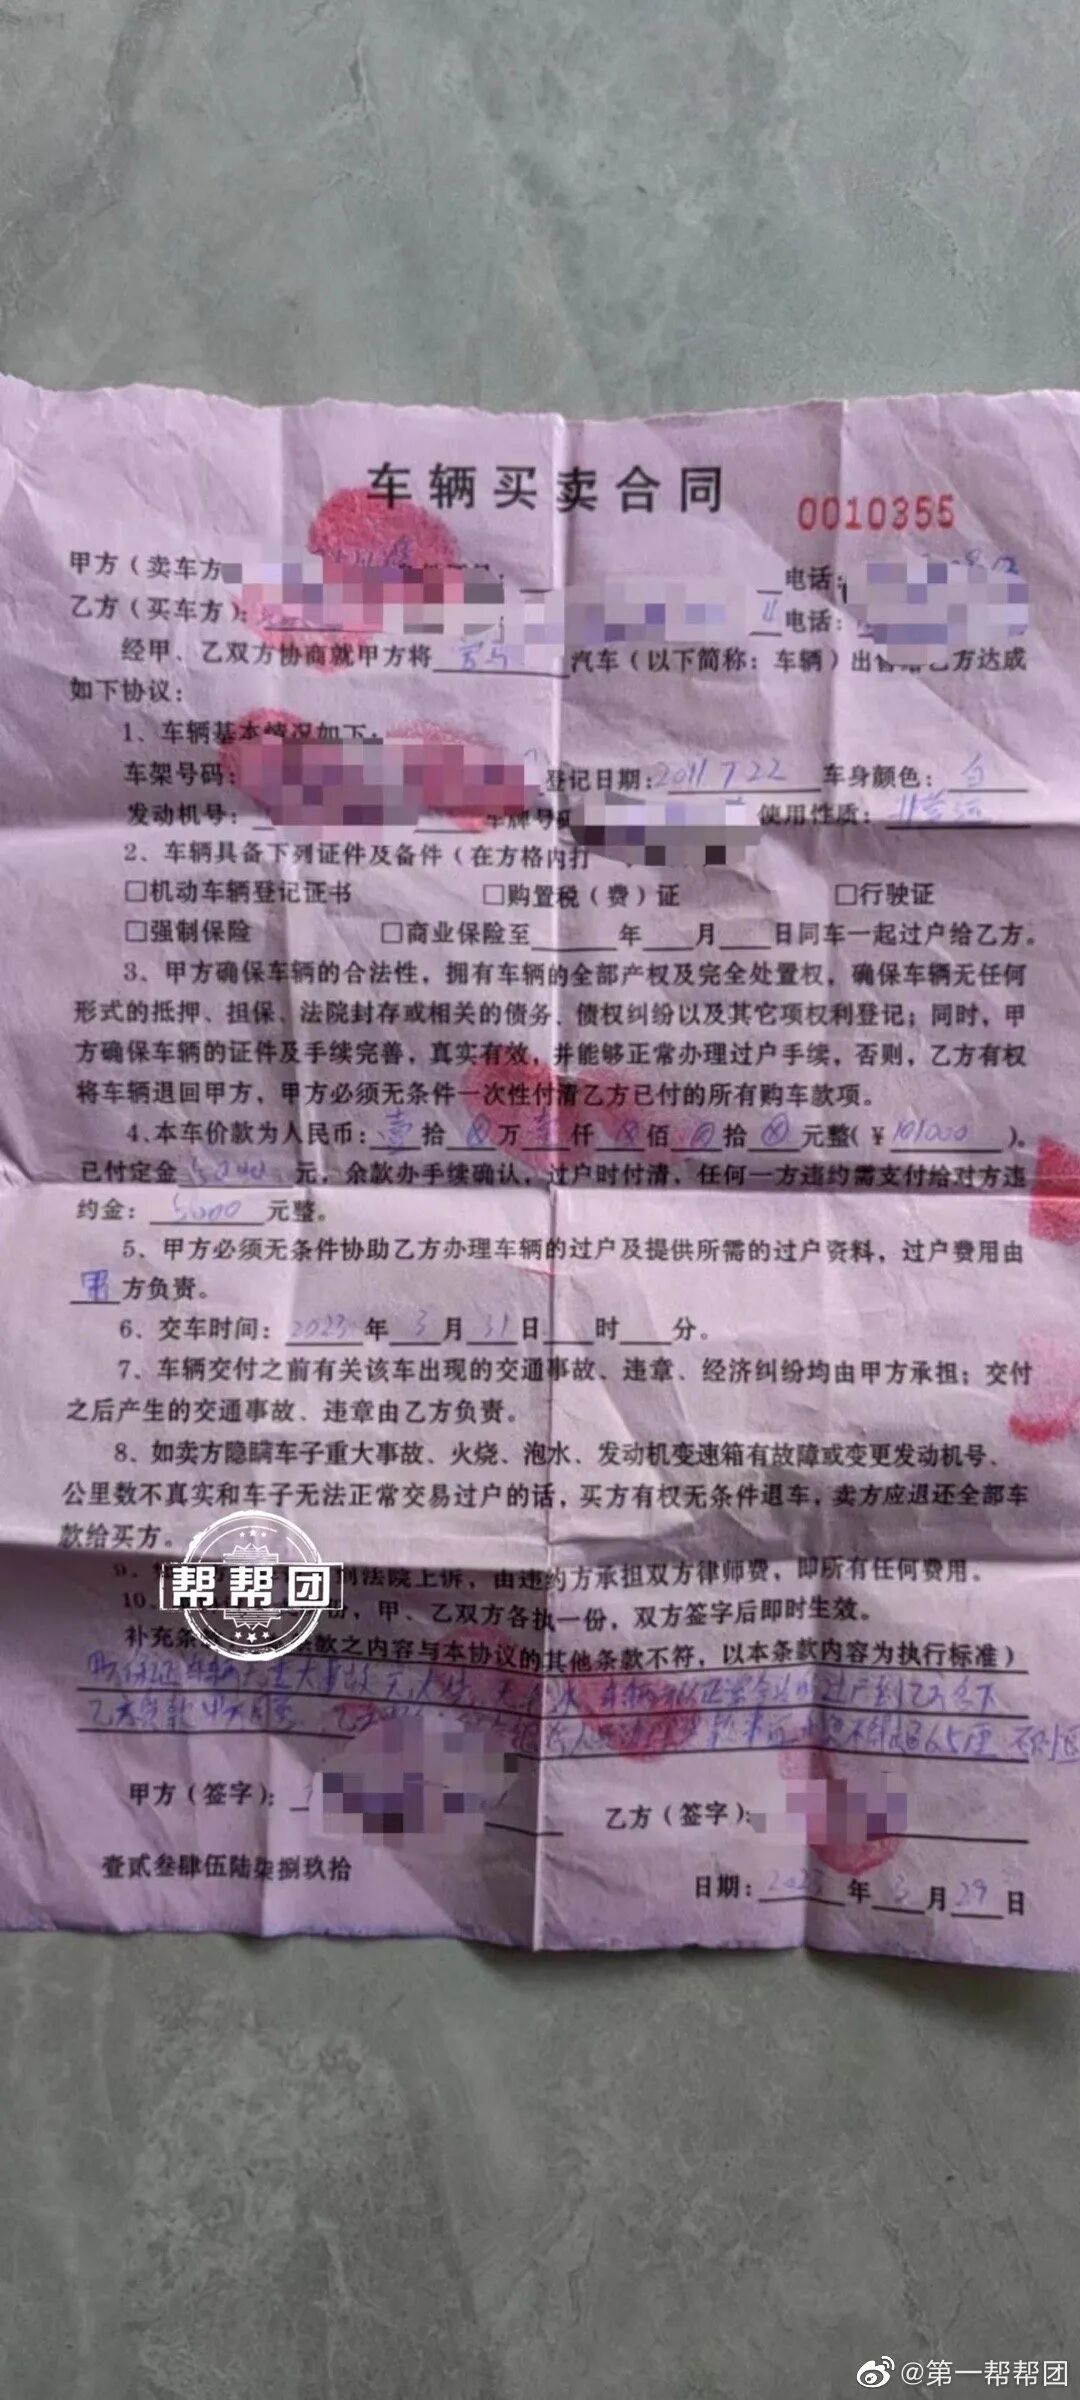 车辆买卖合同
0010355
甲方（卖车方 电话：
乙方（买车方）： 电话：
经甲、乙双方协商就甲方将 宝马 汽车（以下简称：车辆）出 乙方达成
如下协议：
1、车辆基本情况如下：
车架号码： 登记日期：2011.7.22 车身颜色：白
发动机号： 使用性质：非营运
2、车辆具备下列证件及备件（在方格内打
□机动车辆登记证书 □购置税（费）证 □行驶证
□强制保险 □商业保险至 年 月 日同车一起过户给乙方。
3、甲方确保车辆的合法性，拥有车辆的全部产权及完全处置权，确保车辆无任何
形式的抵押、担保、法院封存或相关的债务、债权纠纷以及其它项权利登记；同时，甲
方确保车辆的证件及手续完善，真实有效，并能够正常办理过户手续，否则，乙方有权
将车辆退回甲方，甲方必须无条件一次性付清乙方已付的所有购车款项。
4、本车价款为人民币：壹拾 万壹仟 佰 拾 元整（￥101000）。
已付定金 5000 元，余款办手续确认，过户时付清，任何一方违约需支付给对方违
约金：5000 元整。
5、甲方必须无条件协助乙方办理车辆的过户及提供所需的过户资料，过户费用由
甲方负责。
6、交车时间：2023年3月31日 时 分。
7、车辆交付之前有关该车出现的交通事故、违章、经济纠纷均由甲方承担；交付
之后产生的交通事故、违章由乙方负责。
8、如卖方隐瞒车子重大事故、火烧、泡水、发动机变速箱有故障或变更发动机号、
公里数不真实和车子无法正常交易过户的话，买方有权无条件退车，卖方应退还全部车
款给买方。
9、 法院上诉，由违约方承担双方律师费，即所有任何费用。
帮帮团
10、 份，甲、乙双方各执一份，双方签字后即时生效。
补充条 款之内容与本协议的其他条款不符，以本条款内容为执行标准）
保证车辆无重大事故 无火烧 过户到乙方名下
乙方贷款 不得超过6.5厘
甲方（签字）： 乙方（签字）：
壹贰叁肆伍陆柒捌玖拾
日期：2023年3月29日
@第一帮帮团